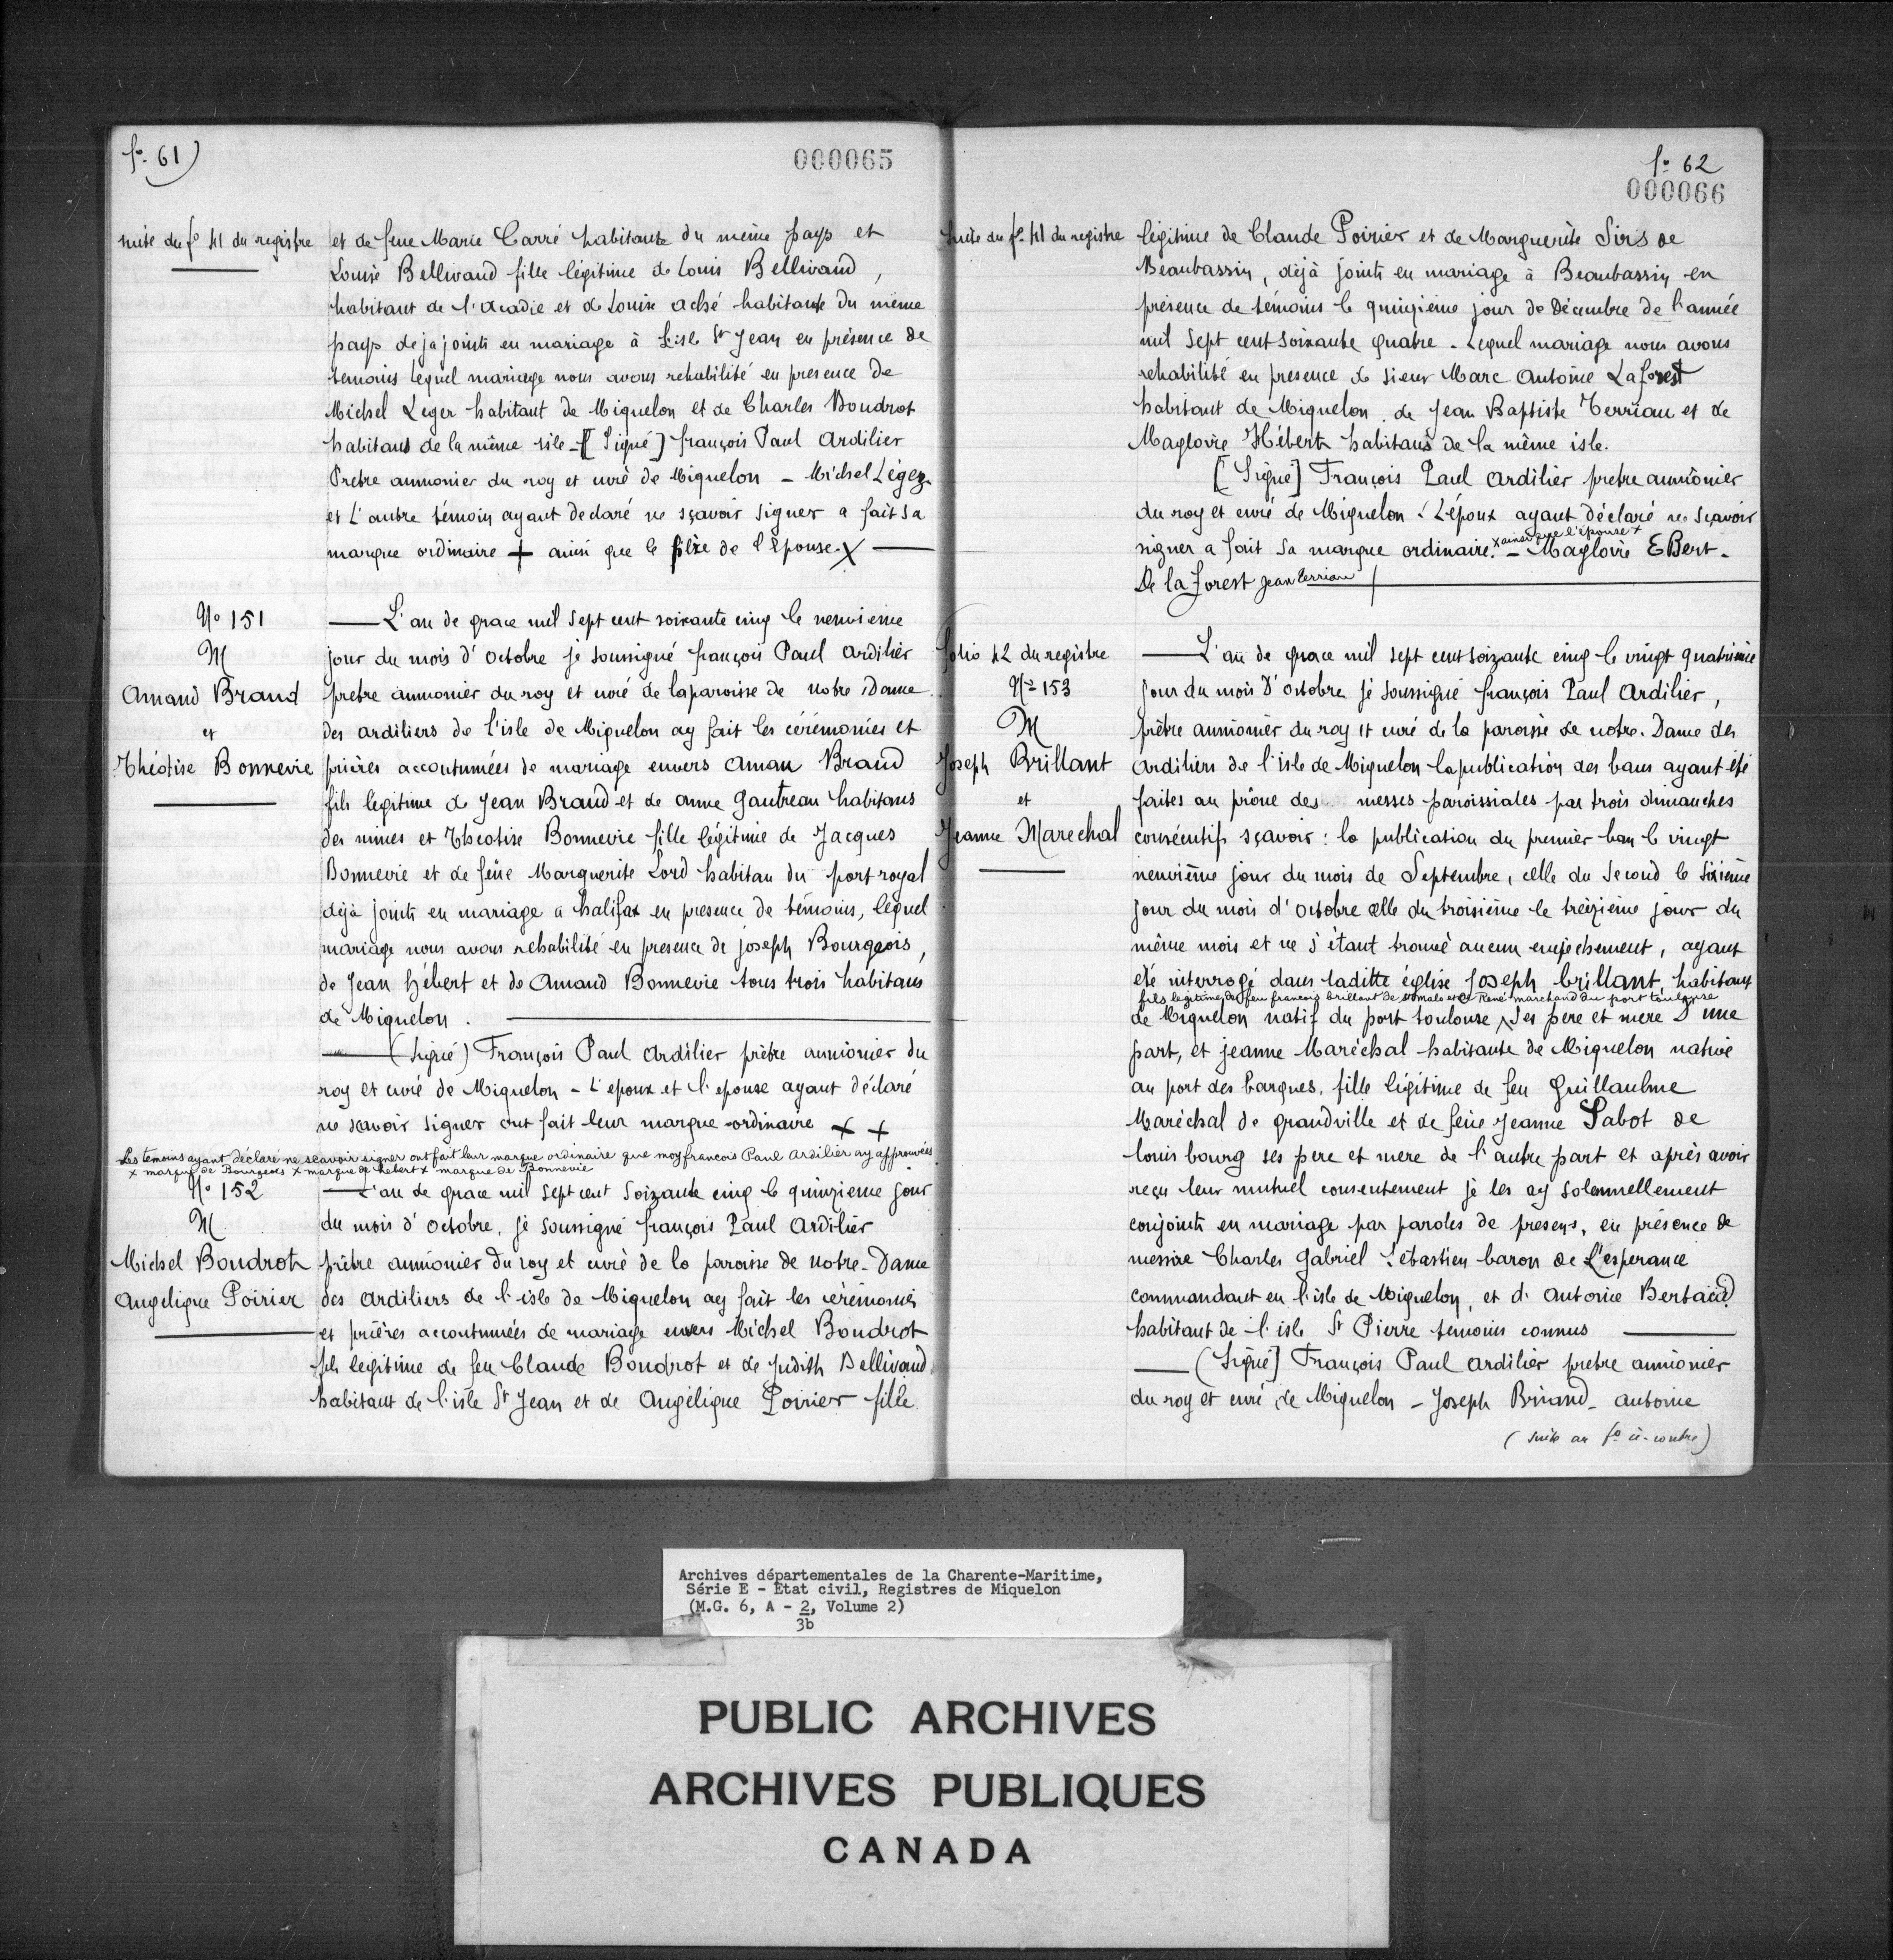 fo. 61)
000065
suite du fo 41 du registre
et de feue Marie Carré habitante du même pays et
Louise Bellivaud fille légitime de Louis Bellivaud,
habitant de l'acadie et de Louise aché habitante du même
pays dejajoints en mariage à L'isle St Jean en présence de
temoins lequel mariage nous avons rehabilité en presence de
Michel Leger habitant de Miquelon et de Charles Boudrot
habitans de la même isle - [Signé] françois Paul Ardilier
Pretre aumonier du roy et curé de Miquelon - Michel Légez.
et L'autre témoin ayant declaré ne sçavoir signer a fait sa
marque ordinaire + ainsi que le père de l'Epouse X
No 151
M
Amand Braud
et
Théotise Bonnevie
L'an de grace mil sept cent soixante cinq le neuvieme
jour du mois d'Octobre je soussigné françois Paul Ardilier
pretre aumonier du roy et curé de laparoisse de Notre Dame
des ardiliers de l'isle de Miquelon ay fait les cérémonies et
prières accoutumées de mariage envers Aman Braud
fils légitime de Jean Braud et de anne Gautreau habitans
des mines et Theotise Bonnevie fille légitime de Jacques
Bonnevie et de feüe Marguerite Lord habitan du port royal
déjà joints en mariage a halifax en presence de témoins, lequel
mariage nous avons rehabilité en presence de joseph Bourgeois,
de Jean Hébert et de Amand Bonnevie tous trois habitans
de Miquelon.
(Signé) François Paul Ardilier prêtre aumonier du
roy et curé de Miquelon - L'epoux et l'epouse ayant déclaré
ne savoir signer ont fait leur marque ordinaire + +
Les temoins ayant déclaré ne scavoir signer ont fait leur marque ordinaire que moy francois Paul Ardilier ay approuvées
x marque de Bourgeois x marque de hebert x marque de Bonnevie
No 152
M
Michel Boudrot
Angelique Poirier
L'an de grace mil sept cent soizante cinq le quinzieme jour
du mois d'Octobre, je soussigné françois Paul Ardilier
prêtre aumonier du roy et curé de la paroisse de Notre-Dame
des Ardiliers de l'isle de Miquelon ay fait les cérémonies
et prières accoutumées de mariage envers Michel Boudrot
fils legitime de feu Claude Boudrot et de Judith Bellivaud,
habitant de l'isle St Jean et de Angélique Poirier fille
fo 62
000066
Suite du fo. 41 du registre
légitime de Claude Poirier et de Marguerite Sirs de
Beaubassin, déjà joints en mariage à Beaubassin en
présence de témoins le quinzième jour de Décembre de l'année
mil sept cent soixante quatre. Lequel mariage nous avons
rehabilité en presence de Sieur Marc Antoine Laforest
habitant de Miquelon, de Jean Baptiste Terriau et de
Magloire Hébert habitans de la même isle.
[Signé] François Paul Ardilier pretre aumônier
du roy et curé de Miquelon. L'époux ayant déclaré ne sçavoir
signer a fait sa marque ordinaire. x ainsi que l'épouse x - Magloire EBert.
De la forest Jean terriau
folio 42 du registre
No 153
M
Joseph Brillant
et
Jeanne Marechal
L'an de grace mil sept cent soizante cinq le vingt quatrième
jour du mois d'Octobre je soussigné françois Paul Ardilier,
prêtre aumonier du roy et curé de la paroisse de notre. Dame des
Ardiliers de l'isle de Miquelon la publication des bans ayant été
faites au prône des messes paroissiales par trois dimanches
consécutifs sçavoir : la publication du premier ban le vingt
neuvième jour du mois de Septembre, celle du second le sixième
jour du mois d'octobre celle du troisième le treizième jour du
même mois et ne s'étant trouvé aucun empechement, ayant
été interrogé dans laditte église Joseph brillant, habitant
fils legitime de feu francois brillant de st malo et de René marchand du port toulouse
de Miquelon natif du port toulouse, ses pere et mere D'une
part, et jeanne Maréchal habitante de Miquelon native
au port des barques, fille légitime de feu Guillaulme
Maréchal de grandville et de feüe Jeanne Sabot de
Louis bourg ses pere et mere de l'autre part et après avoir
reçu leur mutuel consentement je les ay solennellement
conjoints en mariage par paroles de presens, en présence de
messire Charles Gabriel Sébastien baron de L'esperance
commandant en l'isle de Miquelon, et d. Antoine Bertaud
habitant de l'isle St Pierre temoins connus
(Signé] François Paul Ardilier pretre aumonier
du roy et curé de Miquelon - Joseph Briand - antoine
(suite au fo ci-contre)
Archives départementales de la Charente-Maritime,
Série E - État civil, Registres de Miquelon
(M.G. 6, A - 2, Volume 2)
3b
PUBLIC ARCHIVES
ARCHIVES PUBLIQUES
CANADA